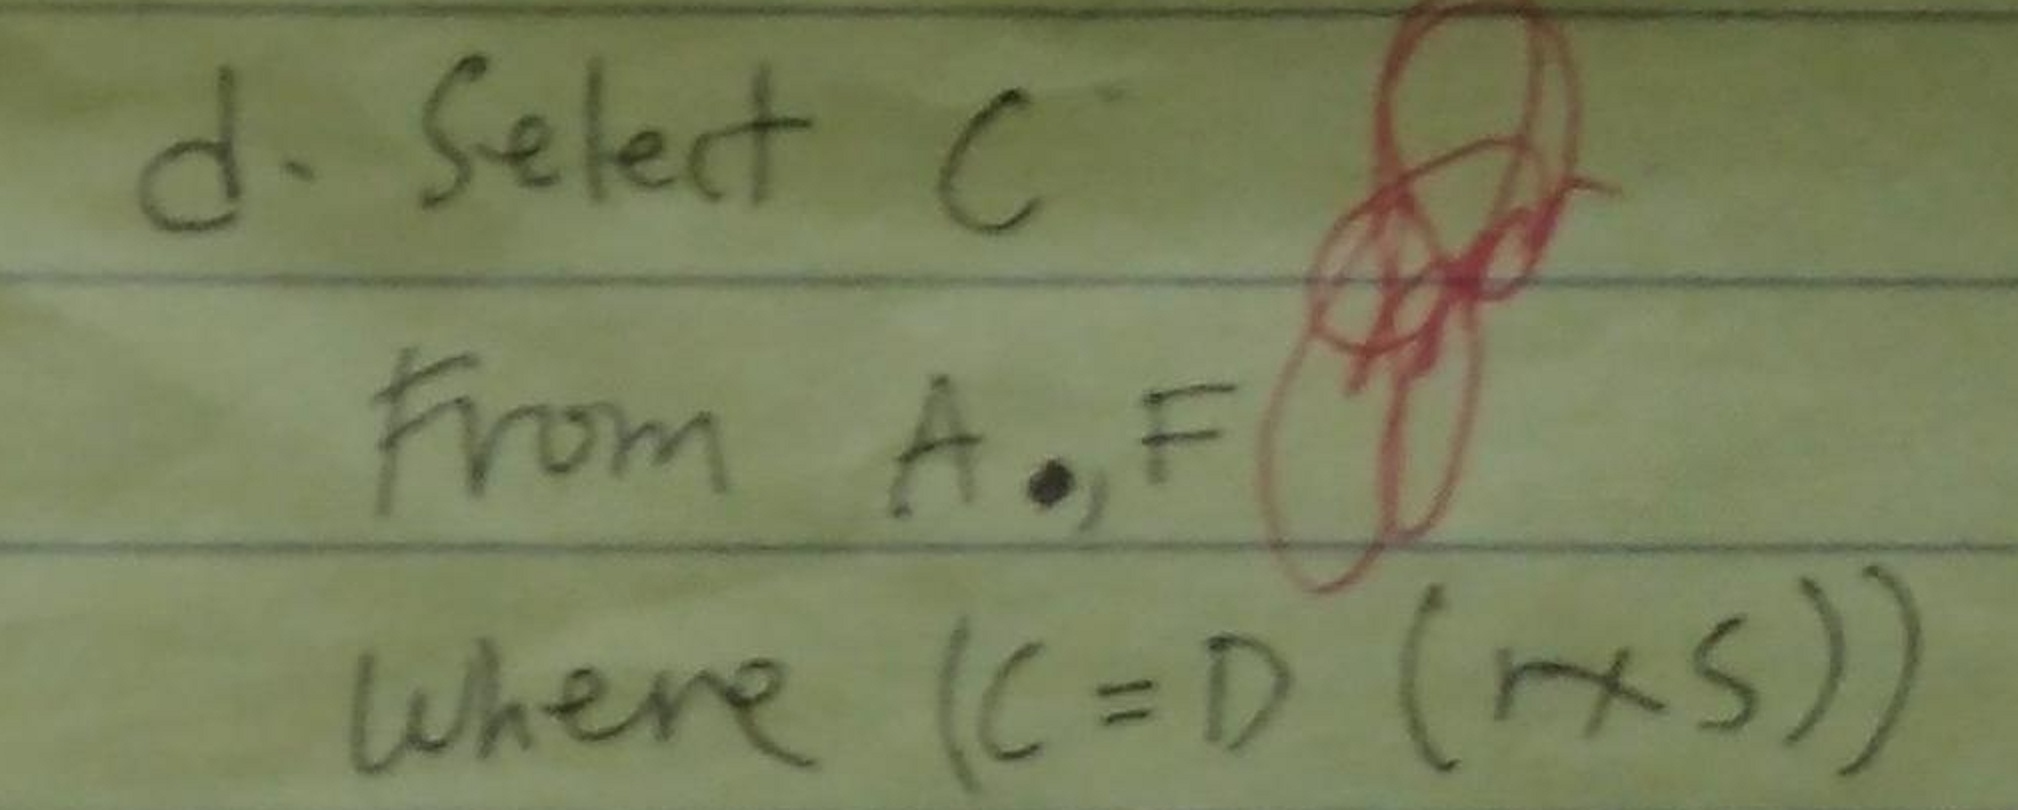 d. Select C
From A , F
Where (C = D (r x S))